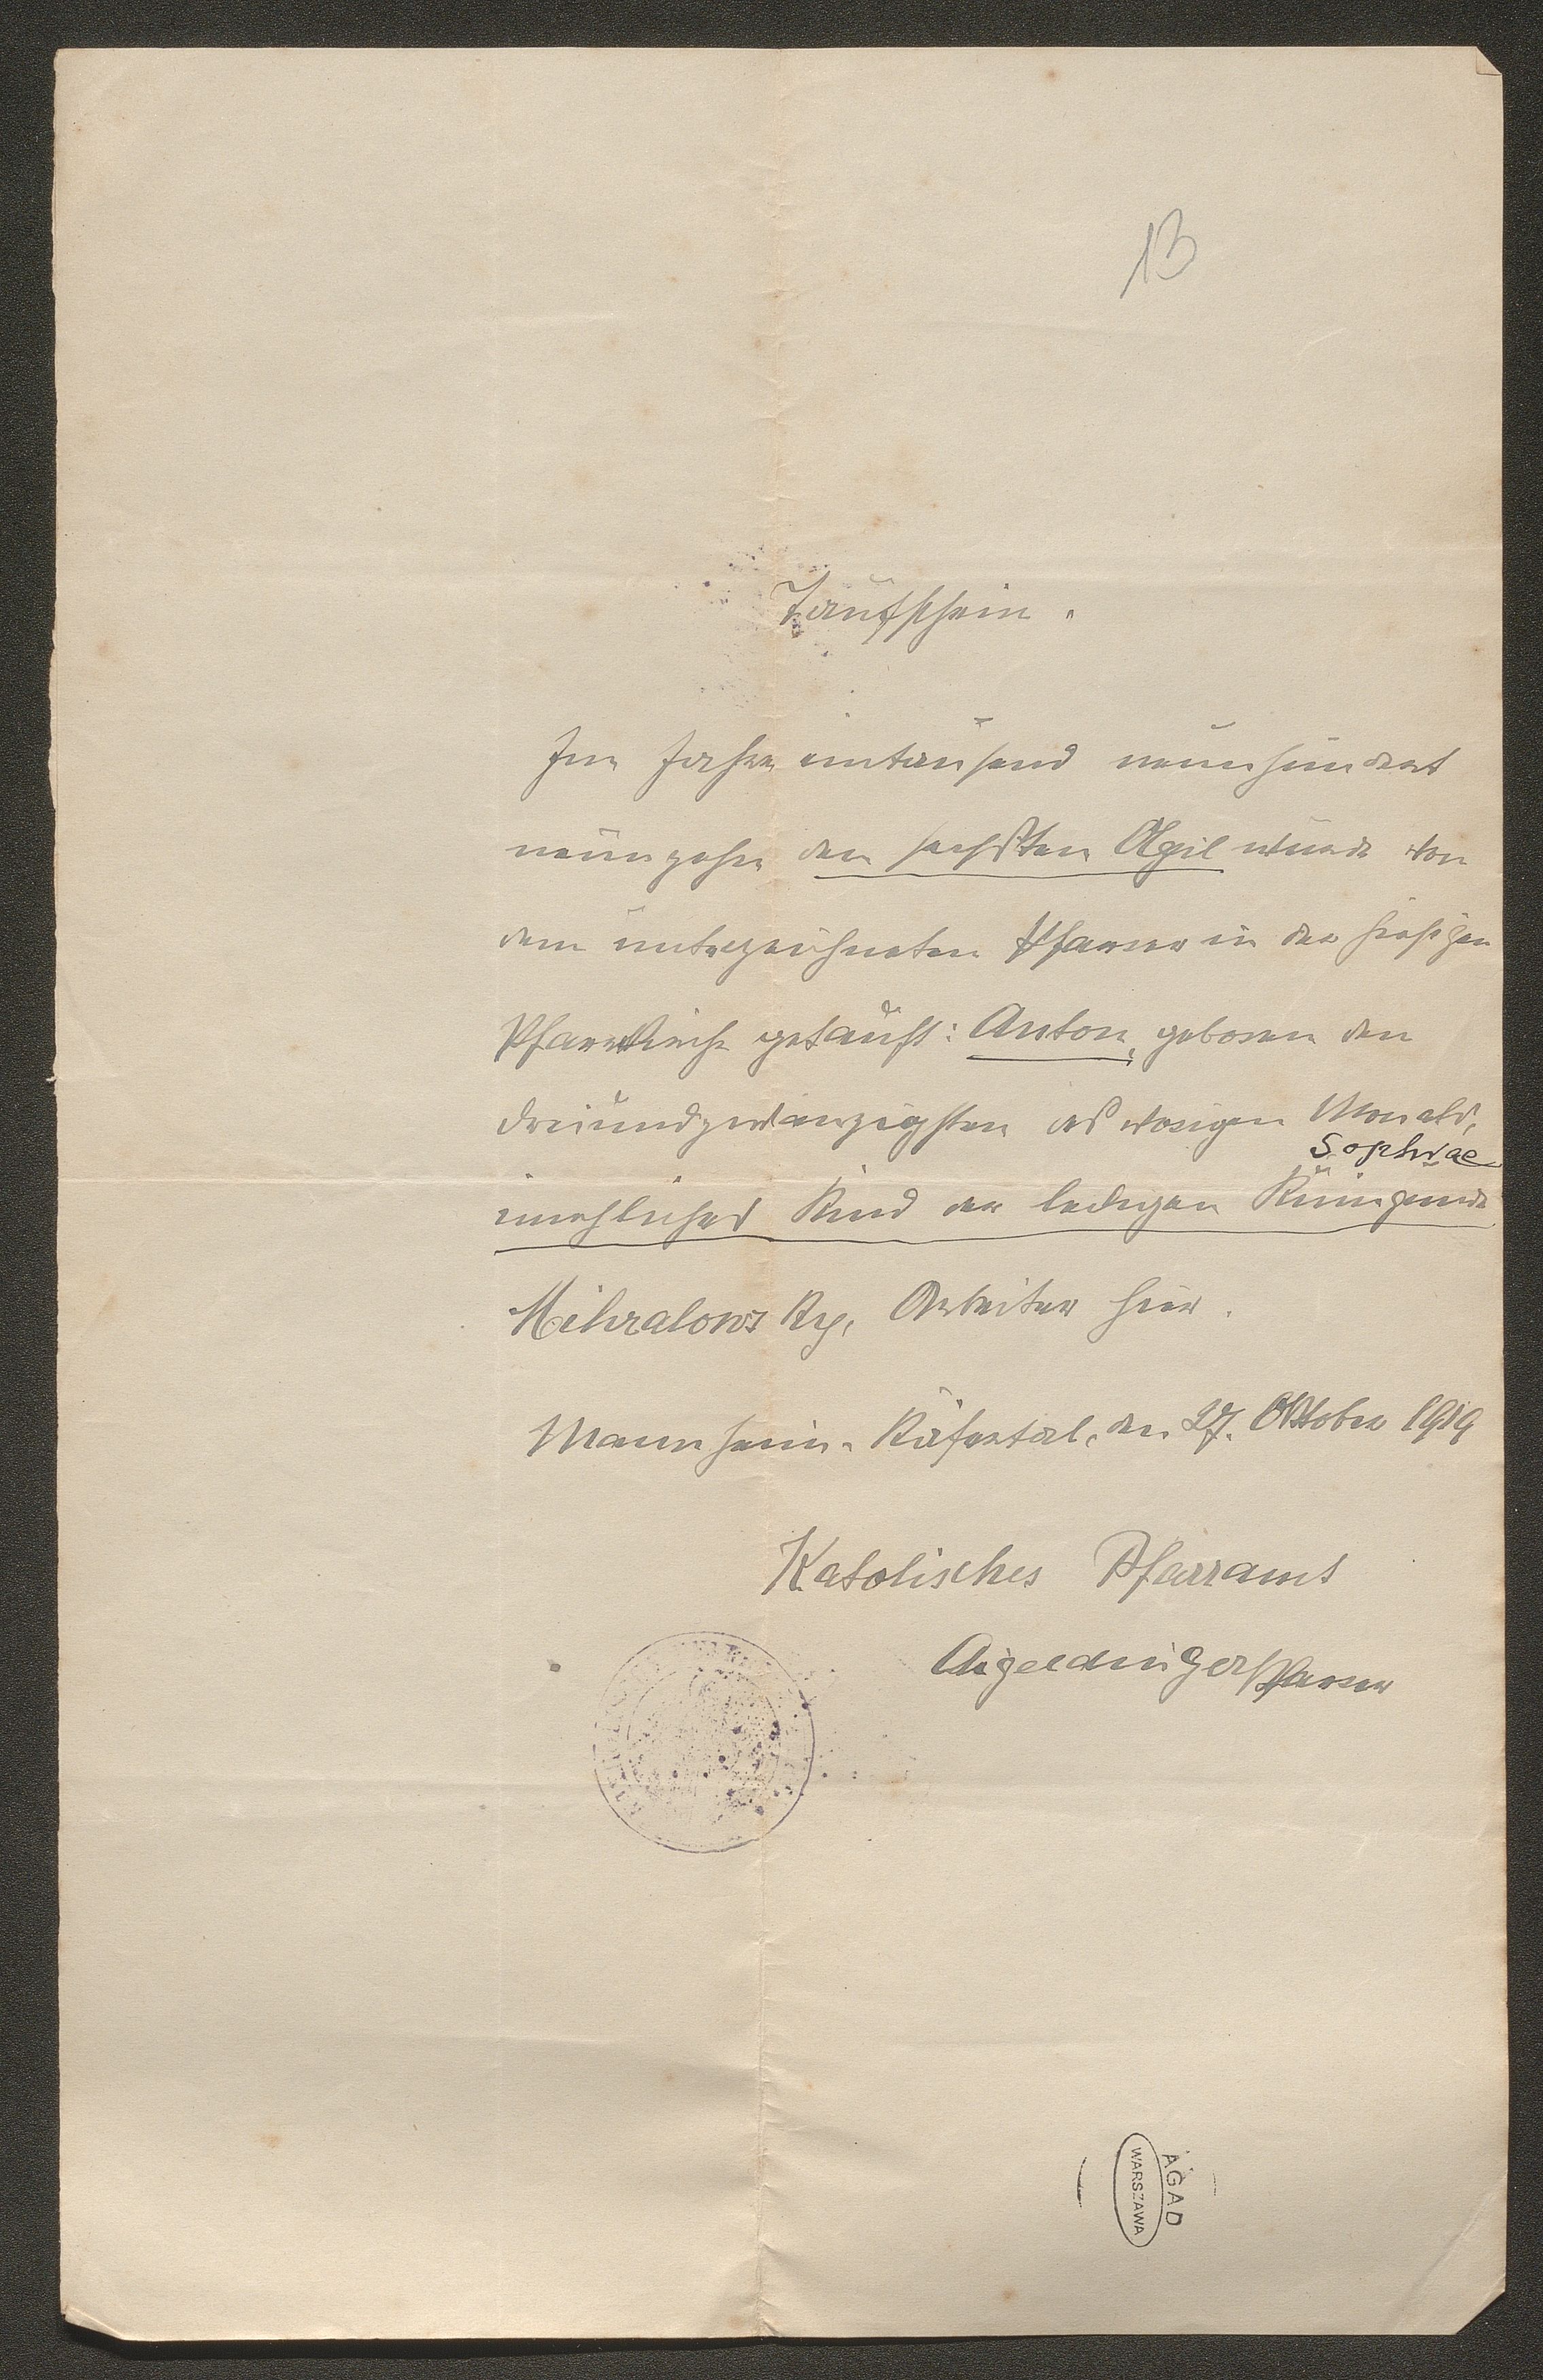 13
Taufschein.
Im Jahre eintausend neunhundert
neunzehn den sechsten April wurde von
dem unterzeichneten Pfarrer in der hiesigen
Pfarrkirche getauft: Anton, geboren den
dreiundzwanzigsten des vorigen Monats,
Sophiae
unehliches Kind der ledigen Kunigunde
Mihralowsky, Arbeiter hier.
Mannheim-Käfertal, den 27. Oktober 1919
Katolisches Pfarramt
Aigeldinger Pfarrer
AGAD
WARSZAWA